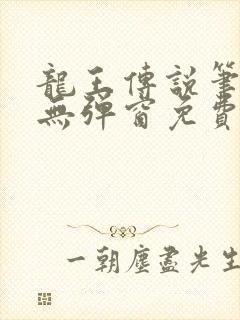 龍王傳說筆
無彈窗免費
一朝塵盡先生